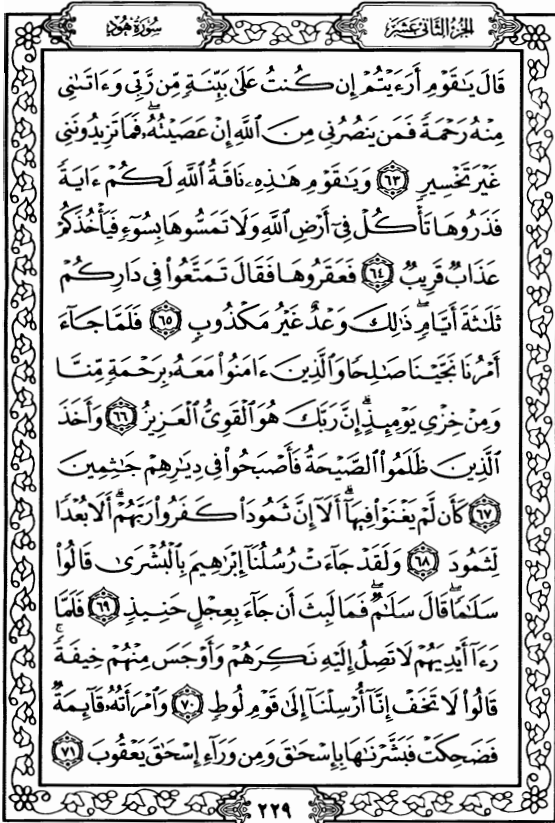 سُورَةُ هُودٍ
الجُزْءُ الثَّانِي عَشَرَ
قَالَ يَٰقَوْمِ أَرَءَيْتُمْ إِن كُنتُ عَلَىٰ بَيِّنَةٍ مِّن رَّبِّي وَءَاتَىٰنِي
مِنْهُ رَحْمَةً فَمَن يَنصُرُنِي مِنَ ٱللَّهِ إِنْ عَصَيْتُهُۥۖ فَمَا تَزِيدُونَنِي
غَيْرَ تَخْسِيرٍ ٦٣ وَيَٰقَوْمِ هَٰذِهِۦ نَاقَةُ ٱللَّهِ لَكُمْ ءَايَةً
فَذَرُوهَا تَأْكُلْ فِيٓ أَرْضِ ٱللَّهِ وَلَا تَمَسُّوهَا بِسُوٓءٍ فَيَأْخُذَكُمْ
عَذَابٌ قَرِيبٌ ٦٤ فَعَقَرُوهَا فَقَالَ تَمَتَّعُوا۟ فِي دَارِكُمْ
ثَلَٰثَةَ أَيَّامٍۖ ذَٰلِكَ وَعْدٌ غَيْرُ مَكْذُوبٍ ٦٥ فَلَمَّا جَآءَ
أَمْرُنَا نَجَّيْنَا صَٰلِحًا وَٱلَّذِينَ ءَامَنُوا۟ مَعَهُۥ بِرَحْمَةٍ مِّنَّا
وَمِنْ خِزْيِ يَوْمِئِذٍۗ إِنَّ رَبَّكَ هُوَ ٱلْقَوِيُّ ٱلْعَزِيزُ ٦٦ وَأَخَذَ
ٱلَّذِينَ ظَلَمُوا۟ ٱلصَّيْحَةُ فَأَصْبَحُوا۟ فِي دِيَٰرِهِمْ جَٰثِمِينَ
٦٧ كَأَن لَّمْ يَغْنَوْا۟ فِيهَآۗ أَلَآ إِنَّ ثَمُودَا۟ كَفَرُوا۟ رَبَّهُمْۗ أَلَا بُعْدًا
لِّثَمُودَ ٦٨ وَلَقَدْ جَآءَتْ رُسُلُنَآ إِبْرَٰهِيمَ بِٱلْبُشْرَىٰ قَالُوا۟
سَلَٰمًاۖ قَالَ سَلَٰمٌۖ فَمَا لَبِثَ أَن جَآءَ بِعِجْلٍ حَنِيذٍ ٦٩ فَلَمَّا
رَءَآ أَيْدِيَهُمْ لَا تَصِلُ إِلَيْهِ نَكِرَهُمْ وَأَوْجَسَ مِنْهُمْ خِيفَةًۚ
قَالُوا۟ لَا تَخَفْ إِنَّآ أُرْسِلْنَآ إِلَىٰ قَوْمِ لُوطٍ ٧٠ وَٱمْرَأَتُهُۥ قَآئِمَةٌ
فَضَحِكَتْ فَبَشَّرْنَٰهَا بِإِسْحَٰقَ وَمِن وَرَآءِ إِسْحَٰقَ يَعْقُوبَ ٧١
٢٢٩